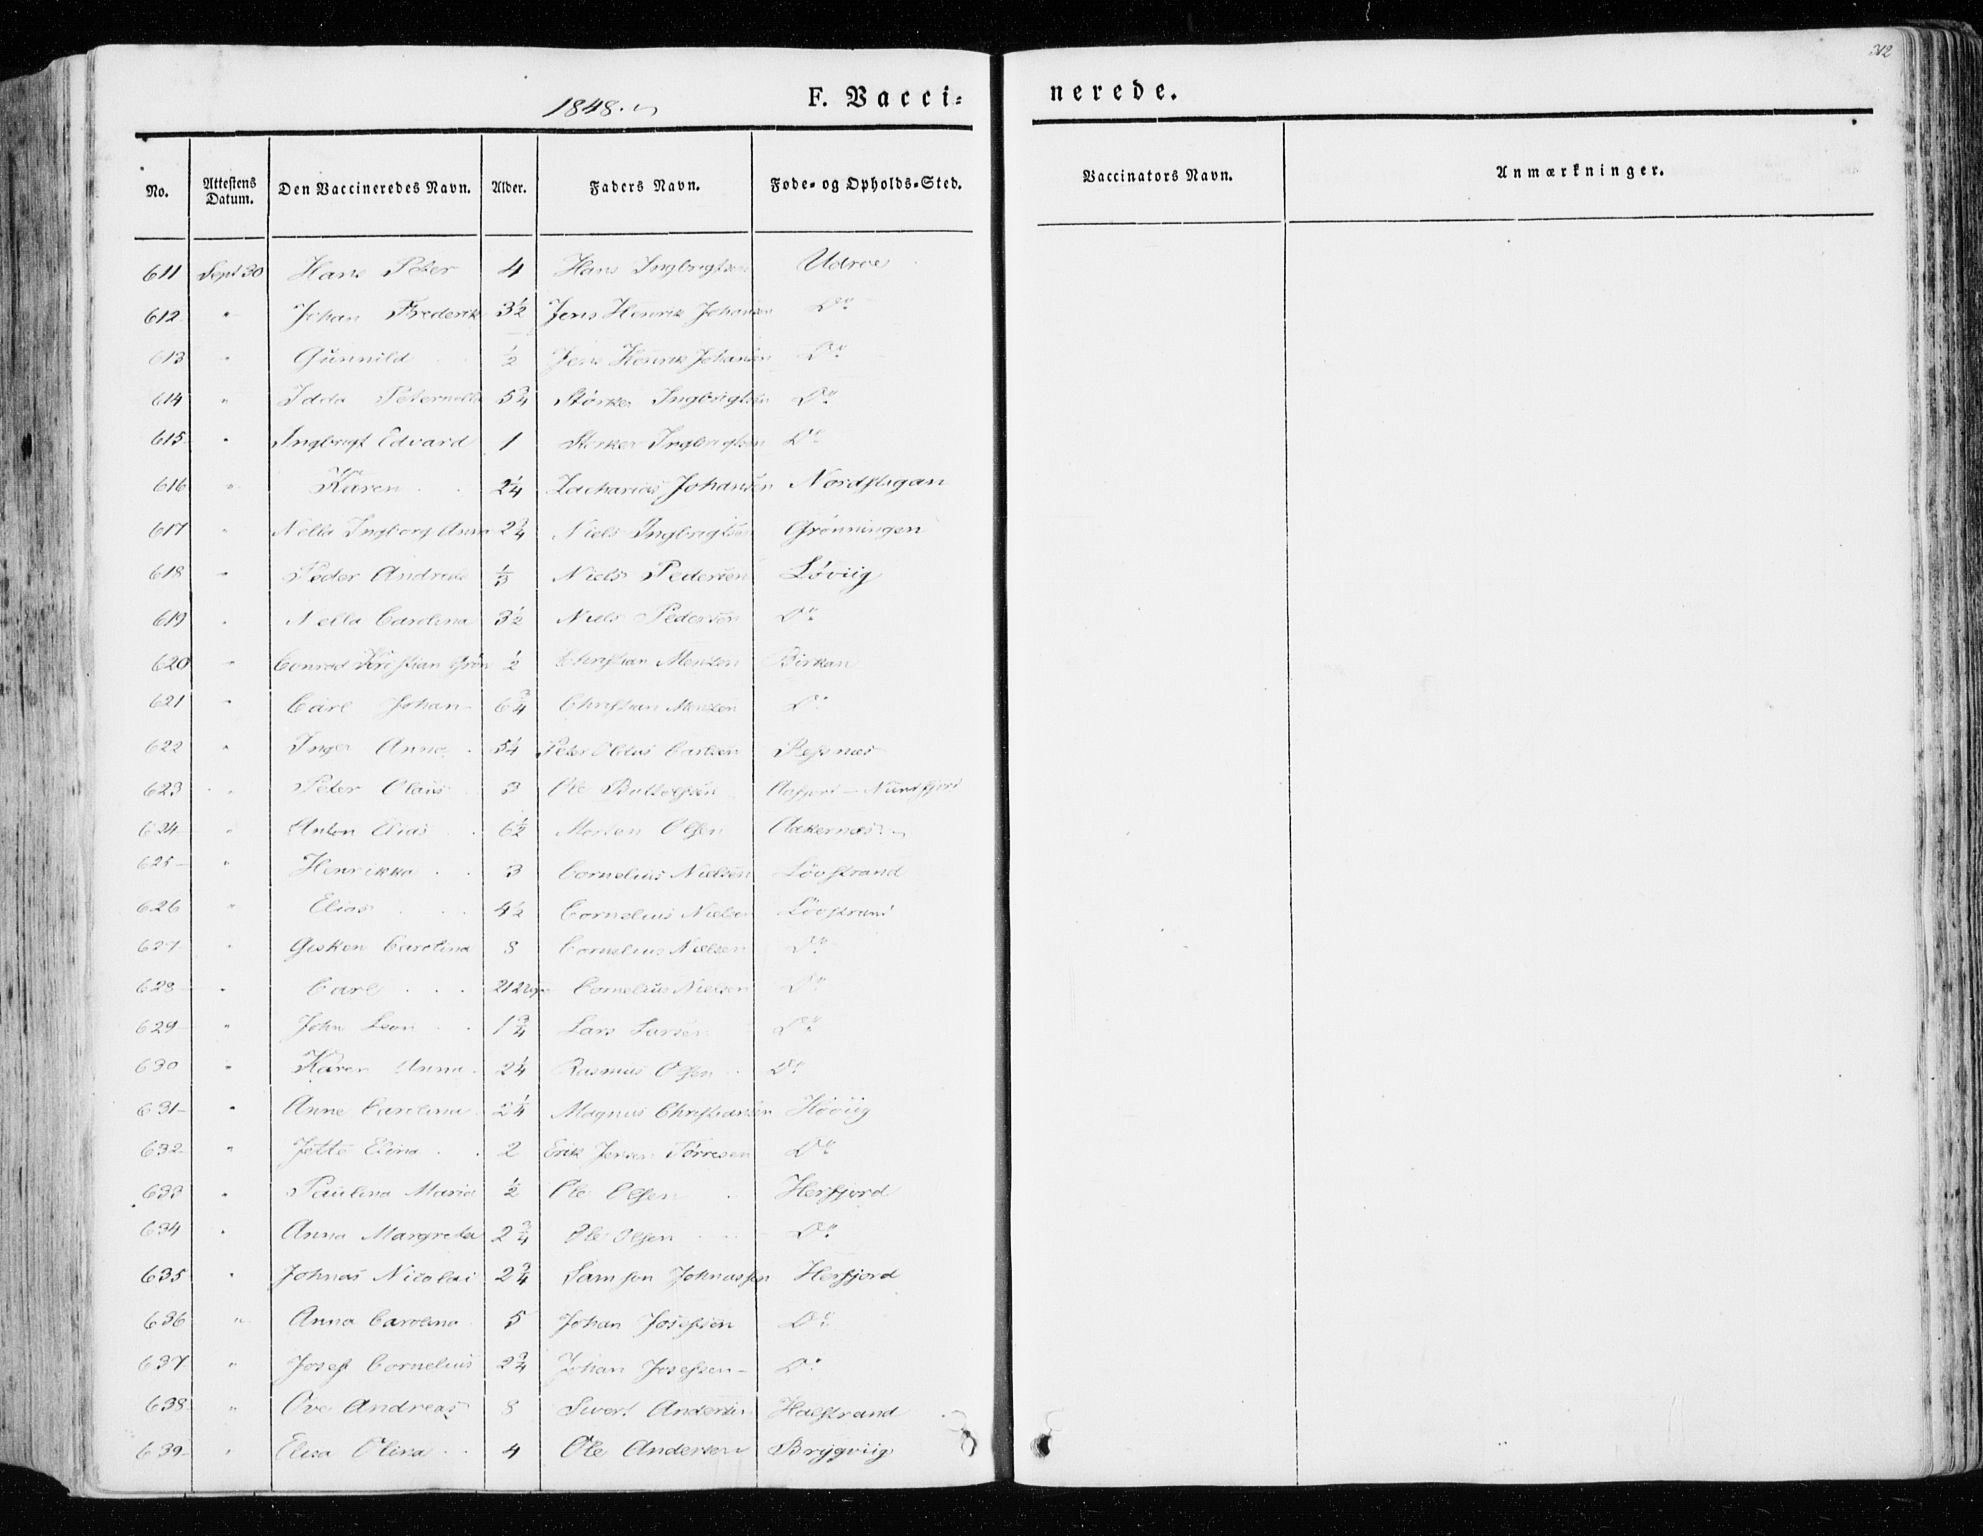 312
1848.
F. Vacci=
nerede.
No. Attestens Datum. Den Vaccineredes Navn. Alder. Faders Navn. Føde- og Opholds-Sted. Vaccinators Navn. Anmærkninger.
611 Sept 30 Hans Peter 4 Hans Ingbrigtsen Udroe
612 " Johan Frederik 3½ Jens Henrik Johansen Do
613 " Gunnild ½ Jens Henrik Johansen Do
614 " Idda Peternella 5¾ Størker Ingbrigtsen Do
615 " Ingbrigt Edvard 1 Størker Ingbrigtsen Do
616 " Karen 2¼ Zacharias Johansen
617 " Nella Ingborg Anna 2¾ Niels Ingbrigtsen Grønningen
618 " Peder Andreas ⅓ Niels Pedersen Løviig
619 " Nella Carolina 3½ Niels Pedersen Do
620 " Conrad Kristian Grøn ½ Christian Menzen Birkan
621 " Carl Johan 6¾ Christian Menzen Do
622 " Inger Anna 5¼ Peter Carlsen Refsnæs
623 " Peter Olaus 3 Ole
624 " Anton Elias 6½ Morten Olsen Aakernæs
625 " Henrikka 3 Cornelius Nielsen Løvstrand
626 " Elias 4½ Cornelius Nielsen Løvstrand
627 " Gisken Carolina 8 Cornelius Nielsen Do
628 " Carl Cornelius Nielsen Do
629 " John Leon 1¾ Lars Larsen Do
630 " Karen Anna 2¼ Rasmus Olsen Do
631 " Anne Carolina 2¼ Magnus Christiansen Høviig
632 " Jette Elina 2 Erik Jensen Tørresen Do
633 " Paulina Maria ½ Ole Olsen Herfjord
634 " Anna Margreta 2¾ Ole Olsen Do
635 " Johnas Nicolai 2¾ Samson Johnassen Herfjord
636 " Anna Carolina 5 Johan Josefsen Do
637 " Josef Cornelius 2¾ Johan Josefsen Do
638 " Ove Andreas 8 Sivert Andersen Halstrand
639 " Elisa Olina 4 Ole Andersen Brygviig